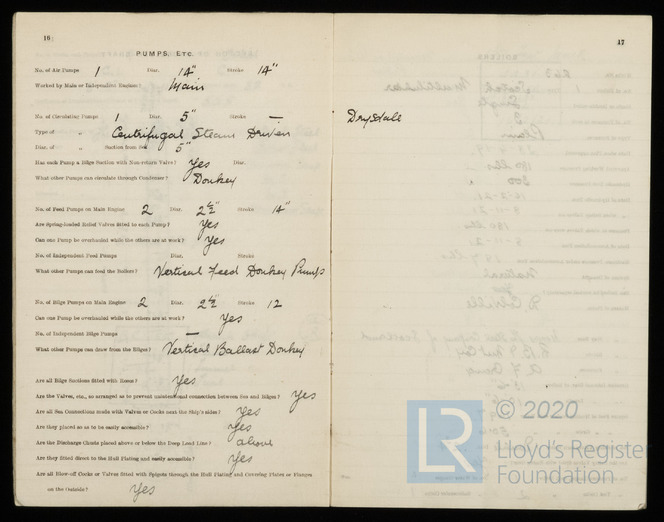 16
PUMPS, ETC.
No. of Air Pumps 1 Diar. 14" Stroke 14"
Worked by Main or Independent Engines? Main
No. of Circulating Pumps 1 Diar. 5" Stroke —
Type of " Centrifugal Steam Driven
Diar. of " Suction from Sea 5"
Has each Pump a Bilge Suction with Non-return Valve? Yes Diar.
What other Pumps can circulate through Condenser? Donkey
No. of Feed Pumps on Main Engine 2 Diar. 2½" Stroke 14"
Are Spring-loaded Relief Valves fitted to each Pump? Yes
Can one Pump be overhauled while the others are at work? Yes
No. of Independent Feed Pumps Diar. Stroke
What other Pumps can feed the Boilers? Vertical Feed Donkey Pumps
No. of Bilge Pumps on Main Engine 2 Diar. 2½" Stroke 12
Can one Pump be overhauled while the others are at work? Yes
No. of Independent Bilge Pumps —
What other Pumps can draw from the Bilges? Vertical Ballast Donkey
Are all Bilge Suctions fitted with Roses? Yes
Are the Valves, etc., so arranged as to prevent unintentional connection between Sea and Bilges? Yes
Are all Sea Connections made with Valves or Cocks next the Ship's sides? Yes
Are they placed so as to be easily accessible? Yes
Are the Discharge Chests placed above or below the Deep Load Line? above
Are they fitted direct to the Hull Plating and easily accessible? Yes
Are all Blow-off Cocks or Valves fitted with Spigots through the Hull Plating and Covering Plates or Flanges
on the Outside? Yes
17
Drysdale
LR
© 2020
Lloyd's Register
Foundation